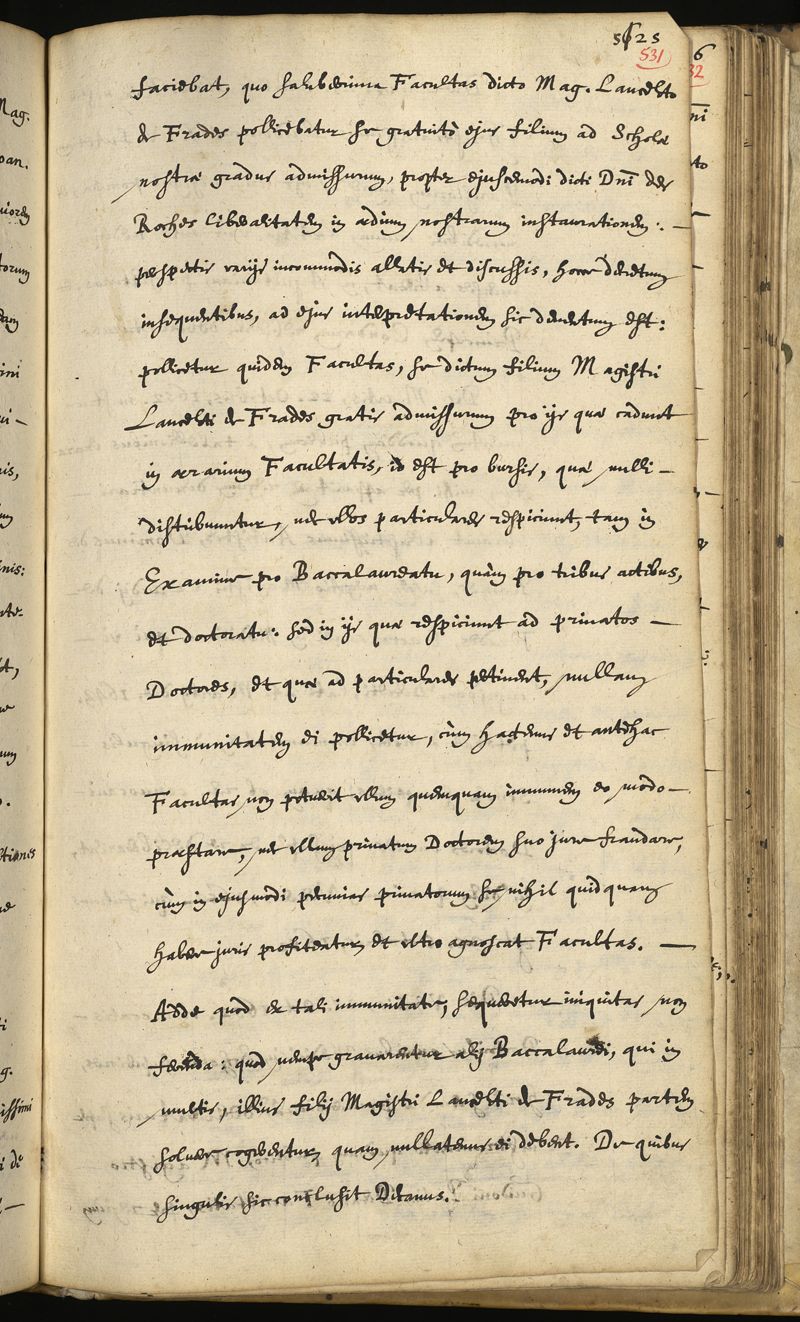 5625
531
faciebat, quo saluberrima Facultas dicto Mag. Lanceloto
de Frades pollicebatur se gratuitò ejus filium ad Scholæ
nostræ gradus admissurum, propter ejuscemodi dicti Dni des
Roches liberalitatem in ædium nostrarum instaurationem:. —
perspectis varijs incommodis allatis et discussis, hocce decretum
insequentibus, ad ejus interpretationem sic decretum est:
pollicetur quidem Facultas, se dictum filium Magistri
Lanceloti de Frades gratis admissurum pro ijs quæ cadunt
in ærarium Facultatis, id est pro bursis, quæ nulli —
distribuuntur, nec ullos particulares respiciunt, tam in
Examine pro Baccalaureatu, quàm pro tribus actibus,
et doctoratu: sed in ijs quæ respiciunt ad privatos —
Doctores, et quæ ad particulares pertinent, nullam
immunitatem ei pollicetur, cùm hactenus et antehac
Facultas non potuerit ullum quemquam immunem eo modo —
præstare, nec ullum privatum Doctorem suo jure fraudare,
cùm in ejusmodi pecunias privatorum se nihil quidquam
habere juris profiteatur, et ultro agnoscat Facultas. —
Adde quòd ex tali immunitate, sequeretur iniquitas non
ferenda: quòd nempe gravarentur alij Baccalaurei, qui in
multis, illius filij Magistri Lanceloti de Frades partem
solvere cogerentur, quam nullatenus ei debent. De quibus
singulis sic conclusit Decanus.